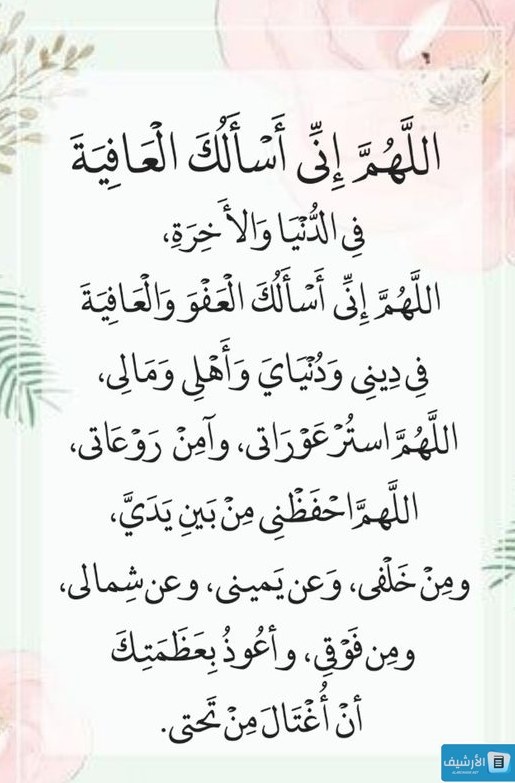 اللَّهُمَّ إِنِّي أَسْأَلُكَ الْعَافِيَةَ
فِي الدُّنْيَا وَالأَخِرَةِ،
اللَّهُمَّ إِنِّي أَسْأَلُكَ الْعَفْوَ وَالْعَافِيَةَ
فِي دِينِي وَدُنْيَايَ وَأَهْلِي وَمَالِى،
اللَّهُمَّ استُرْ عَوْرَاتى، وآمِنْ رَوْعَاتى،
اللَّهمَّ احْفَظْنِى مِنْ بَينِ يَدَيَّ،
ومِنْ خَلْفى، وَعن يَمينى، وعن شِمالى،
ومِن فَوْقِي، وأعُوذُ بِعَظَمَتِكَ
أنْ أُغْتَالَ مِنْ تَحتى.
الأرشيف